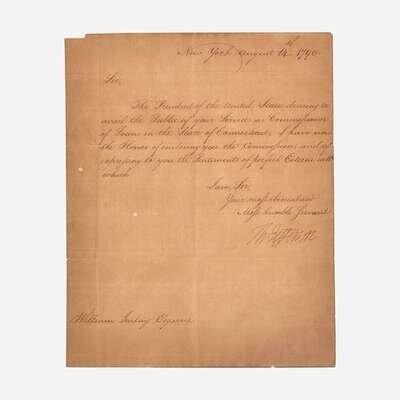 New York August 14th 1790.
Sir,
The President of the United States desiring to
avail the Public of your Services as Commissioner
of Loans in the State of Connecticut, I have now
the Honor of enclosing you the Commission, and of
expressing to you the Sentiments of perfect Esteem with
which
I am, Sir,
Your most obedient and
Most humble Servant
Th: Jefferson
William Imlay Esquire